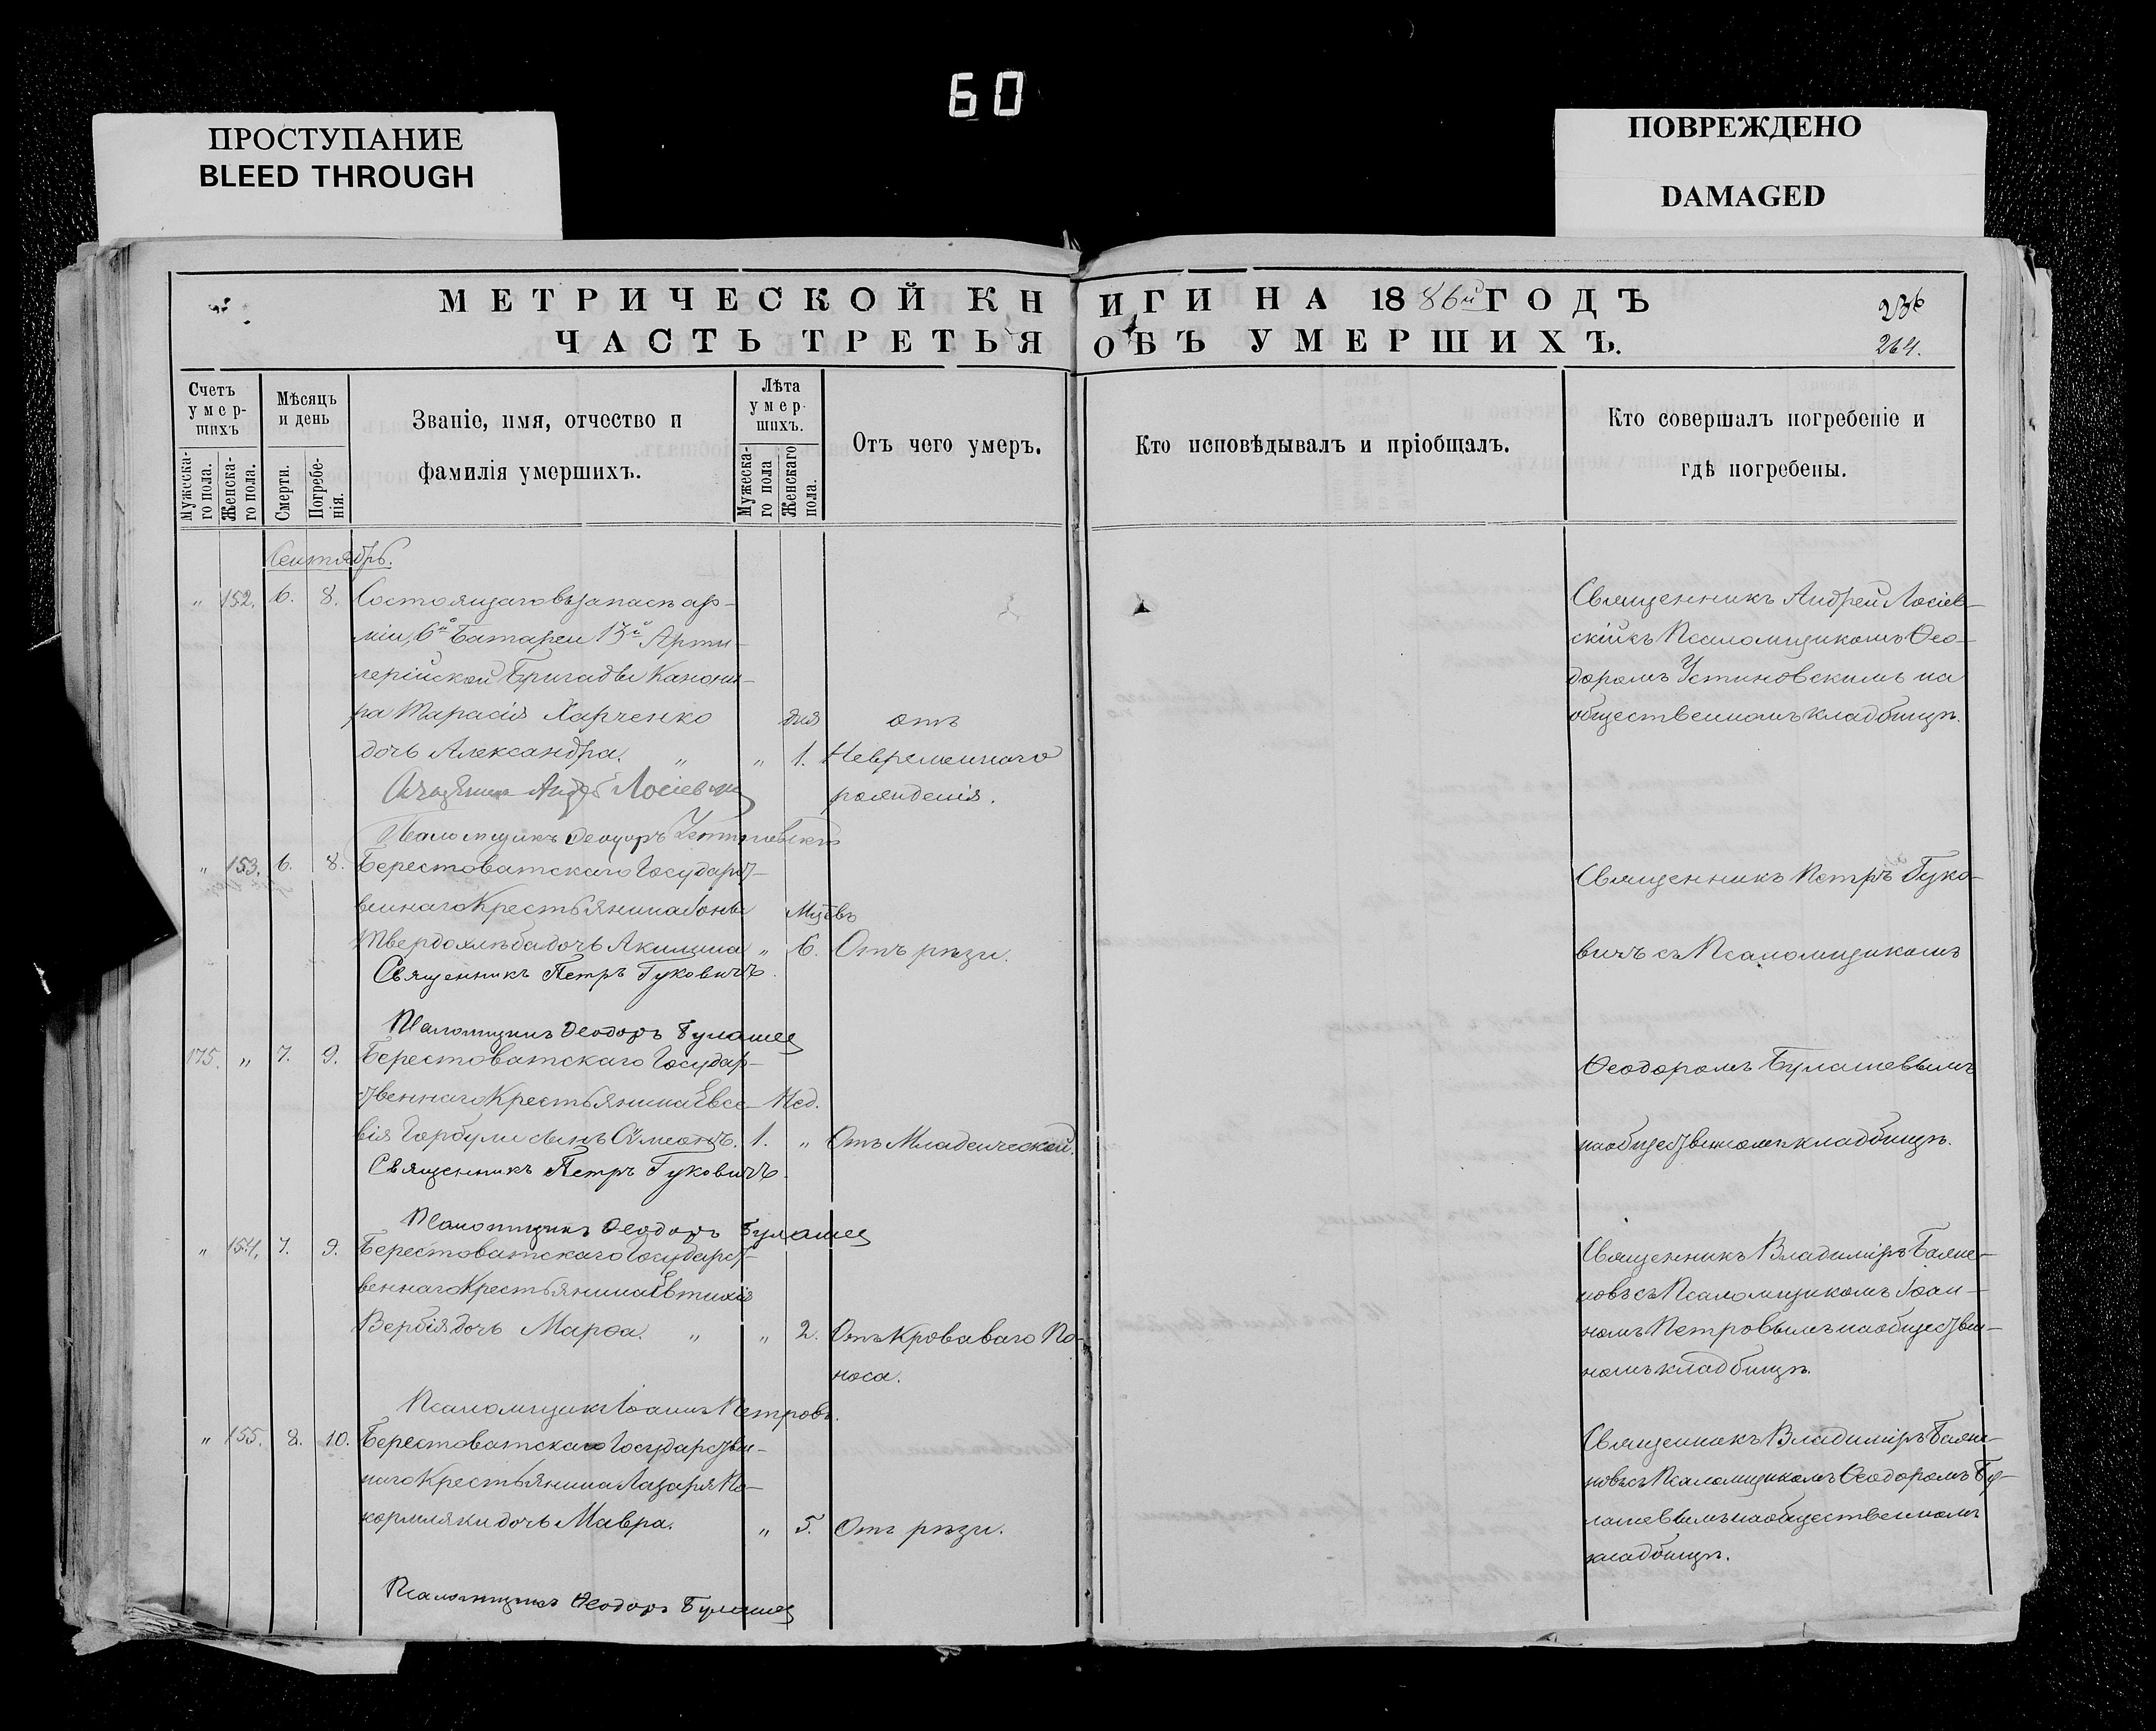 60
ПРОСТУПАНИЕ
BLEED THROUGH
ПОВРЕЖДЕНО
DAMAGED
МЕТРИЧЕСКОЙ КНИГИ НА 1886й ГОДЪ
ЧАСТЬ ТРЕТЬЯ ОБЪ УМЕРШИХЪ.
236
264.
Счетъ умер-шихъ
Мужеска-го пола.
Женска-го пола.
Мѣсяцъ и день
Смерти.
Погребе-нія.
Званіе, имя, отчество и
фамилія умершихъ.
Лѣта умер-шихъ.
Мужеска-го пола
Женскаго пола.
Отъ чего умеръ.
Кто исповѣдывалъ и пріобщалъ.
Кто совершалъ погребеніе и
гдѣ погребены.
Сентябрь.
" 152. 6. 8. Состоящаго въ запасѣ ар-
міи, 6й Батареи 13й Арти-
лерійской Бригады Канони-
ра Тарасія Харченко дня отъ
дочь Александра. " " 1. Невременнаго
рожденія.
Священникъ Андрей Лосіевскій
Псаломщикъ Ѳеодоръ Устиновскій
Священникъ Андрей Лосіев-
скій съ Псаломщикомъ Ѳео-
доромъ Устиновскимъ на
общественномъ кладбищѣ.
" 153. 6. 8. Берестоватскаго Государст-
веннаго Крестьянина Іоны Мцевъ
Твердохлѣба дочь Акилина " 6. Отъ рѣзи.
Священникъ Петръ Гуковичъ.
Псаломщикъ Ѳеодоръ Булашев
Священникъ Петръ Гуко-
вичъ съ Псаломщикомъ
175. " 7. 9. Берестоватскаго Государ-
ственнаго Крестьянина Евсе- Нед.
вія Горбули сынъ Сѵмеонъ. 1. " Отъ Младенческой.
Священникъ Петръ Гуковичъ.
Псаломщикъ Ѳеодоръ Булашев
Ѳеодоромъ Булашевымъ
на общественномъ кладбищѣ.
" 154. 7. 9. Берестоватскаго Государст-
веннаго Крестьянина Евтихія
Вербія дочь Марѳа. " " 2. Отъ Кроваваго По-
носа.
Псаломщикъ Іоаннъ Петровъ.
Священникъ Владиміръ Бажа-
новъ съ Псаломщикомъ Іоан-
номъ Петровымъ на обществен-
номъ кладбищѣ.
" 155. 8. 10. Берестоватскаго Государствен-
наго Крестьянина Лазаря По-
кормляки дочь Мавра. " 5. Отъ рѣзи.
Псаломщикъ Ѳеодоръ Булашев
Священникъ Владиміръ Бажа-
новъ съ Псаломщикомъ Ѳеодоромъ Бу-
лашевымъ на общественномъ
кладбищѣ.